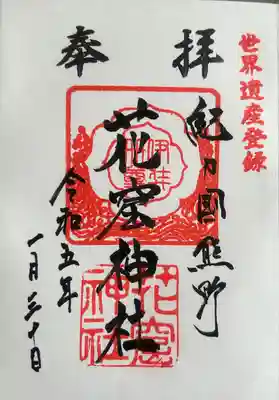 世界遺産登録
奉拝
紀乃國熊野
花窟神社
令和五年
一月三十日
花窟神社